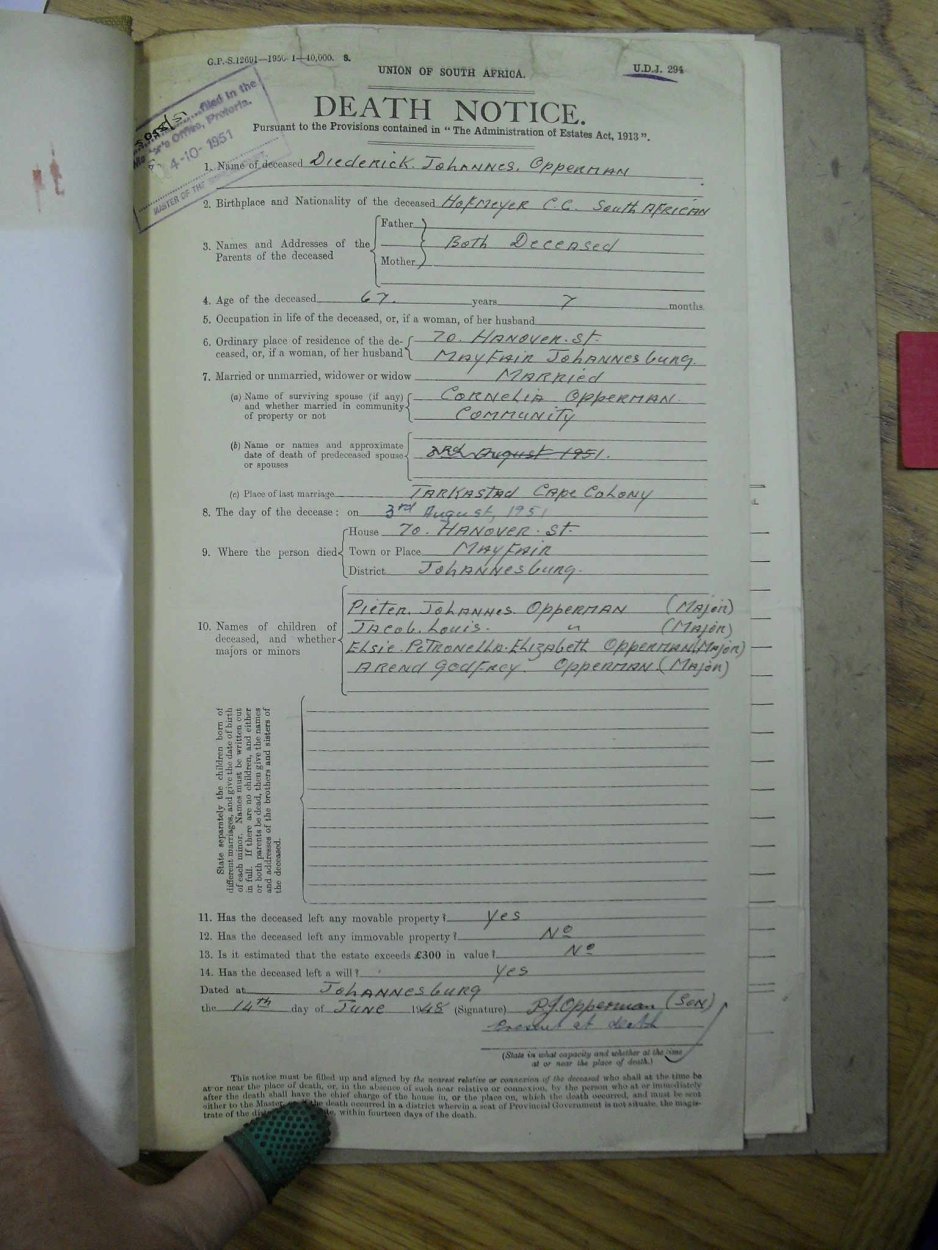 G.P.-S.12691—1950 1—40,000. S.
UNION OF SOUTH AFRICA.
U.D.J. 294
DEATH NOTICE.
Pursuant to the Provisions contained in "The Administration of Estates Act, 1913".
filed in the
Office, Pretoria.
4-10-1951
MASTER OF THE
1. Name of deceased Diederick Johannes. Opperman
2. Birthplace and Nationality of the deceased Hofmeyer C.C. South African
3. Names and Addresses of the Parents of the deceased
Father
Both Deceased
Mother
4. Age of the deceased 67. years 7 months.
5. Occupation in life of the deceased, or, if a woman, of her husband
6. Ordinary place of residence of the de- 70. Hanover. St.
ceased, or, if a woman, of her husband Mayfair Johannesburg.
7. Married or unmarried, widower or widow Married
(a) Name of surviving spouse (if any) Cornelia Opperman.
and whether married in community
of property or not Community
(b) Name or names and approximate
date of death of predeceased spouse 3rd August 1951.
or spouses
(c) Place of last marriage Tarkastad Cape Colony
8. The day of the decease: on 3rd August, 1951
9. Where the person died
House 70. Hanover. St.
Town or Place Mayfair
District Johannesburg.
10. Names of children of
deceased, and whether
majors or minors
Pieter. Johannes. Opperman (Major)
Jacob. Louis. " (Major)
Elsie. Petronella. Elizabeth Opperman (Major)
Arend Godfrey. Opperman (Major)
State separately the children born of
different marriages, and give the date of birth
of each minor. Names must be written out
in full. If there are no children, and either
or both parents be dead, then give the names
and addresses of the brothers and sisters of
the deceased.
11. Has the deceased left any movable property? Yes
12. Has the deceased left any immovable property? No
13. Is it estimated that the estate exceeds £300 in value? No
14. Has the deceased left a will? Yes
Dated at Johannesburg
the 14th day of June 1948 (Signature) P.J. Opperman (Son)
Present at death
(State in what capacity and whether at the time
at or near the place of death.)
This notice must be filled up and signed by the nearest relative or connexion of the deceased who shall at the time be
at or near the place of death, or, in the absence of such near relative or connexion, by the person who at or immediately
after the death shall have the chief charge of the house in, or the place on, which the death occurred, and must be sent
either to the Master, the death occurred in a district wherein a seat of Provincial Government is not situate, the magis-
trate of the within fourteen days of the death.